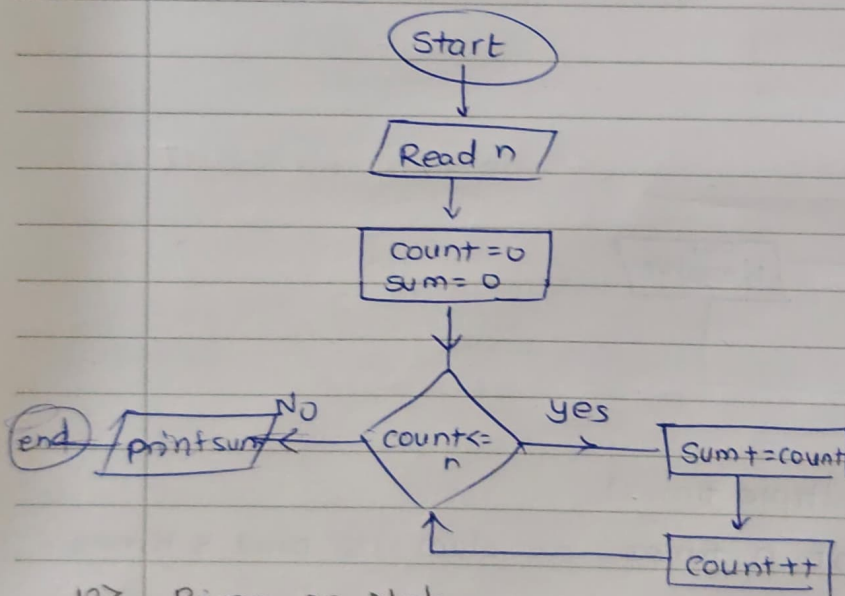 Start
Read n
count = 0
sum = 0
count<=
n
No
yes
print sum
end
Sum+=count
count++